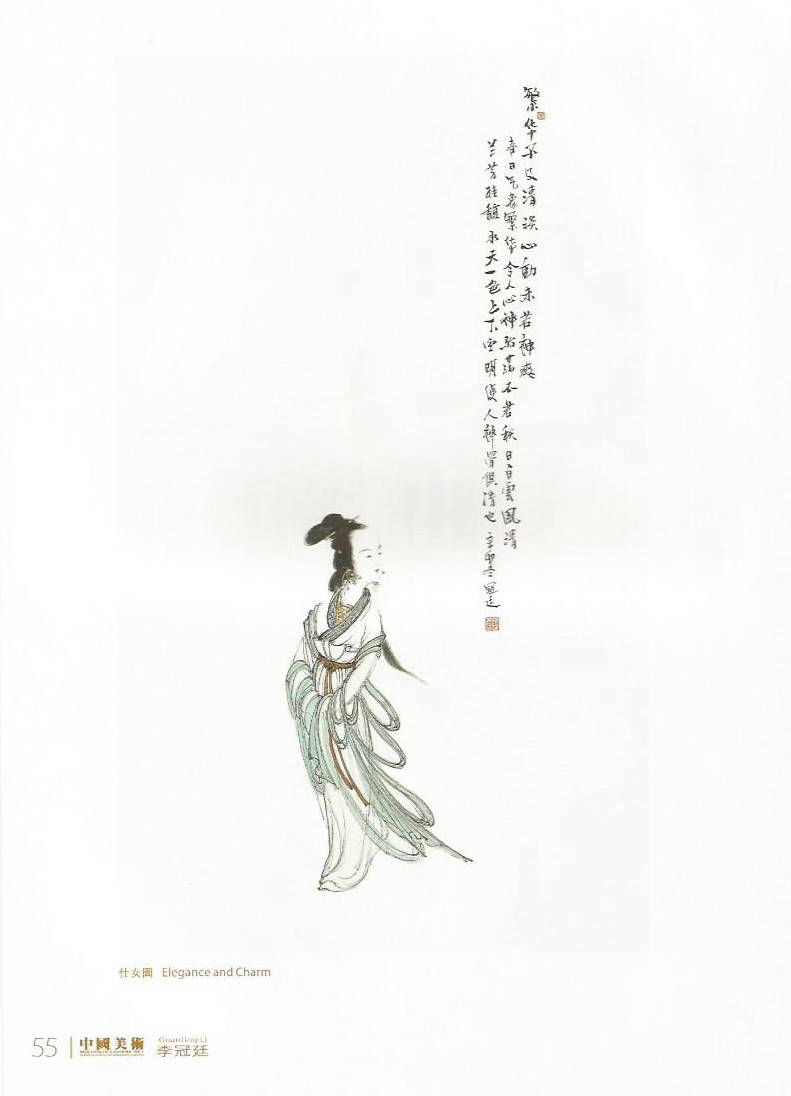 繁华不及清淡心動未若神
春日气象繁华令人心神駘荡不若秋日白雲風清
兰芳桂馥水天一色上下空明使人神骨俱清也 冠廷
仕女圖 Elegance and Charm
55 中國美術 Guanting Li
李冠廷